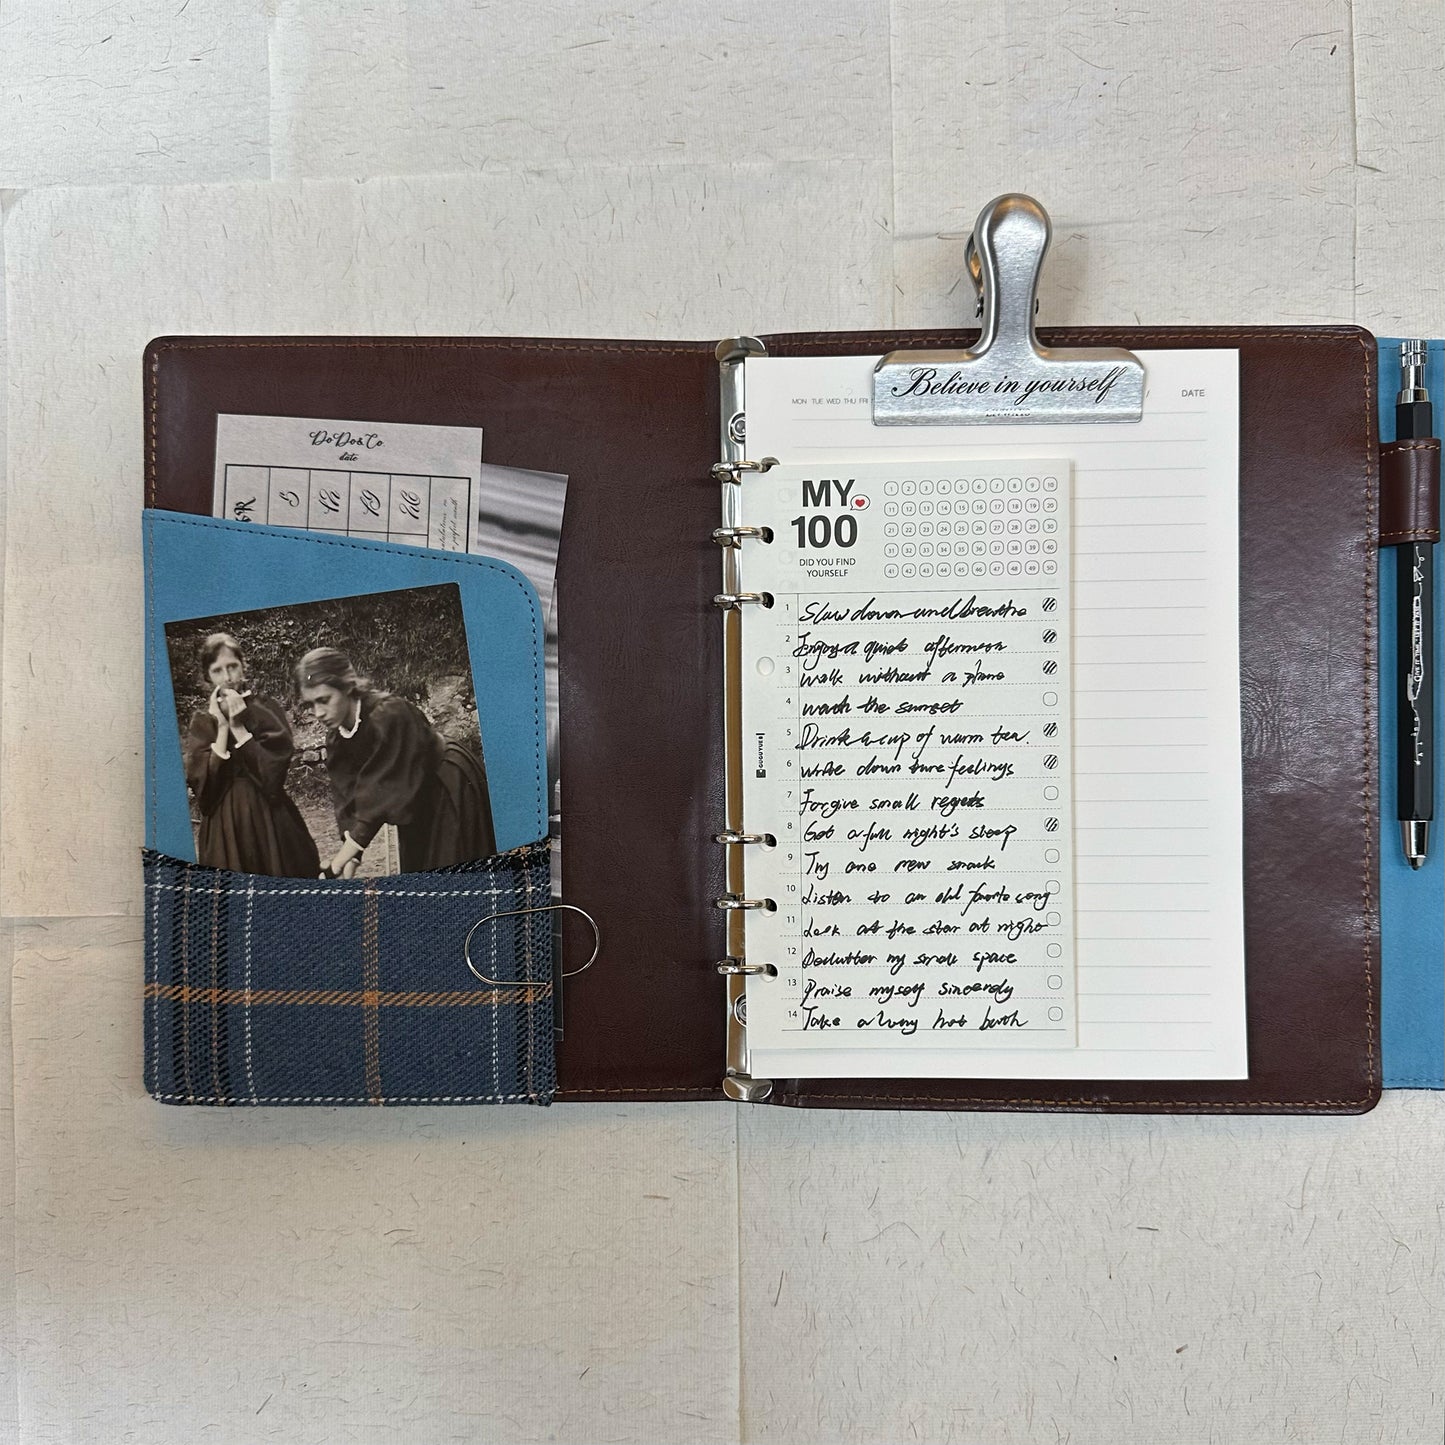 DoDo&Co.
date
Believe in yourself
MON TUE WED THU FRI
DATE
MY
100
DID YOU FIND
YOURSELF
1 2 3 4 5 6 7 8 9 10
11 12 13 14 15 16 17 18 19 20
21 22 23 24 25 26 27 28 29 30
31 32 33 34 35 36 37 38 39 40
41 42 43 44 45 46 47 48 49 50
1 Slow down and breathe
2 Enjoy a quiet afternoon
3 walk without a plane
4 watch the sunset
5 Drink a cup of warm tea.
6 write down ture feelings
7 Forgive small regrets
8 Get a full night's sleep
9 Try one new snack
10 Listen to an old favorte song
11 Look at the star at night
12 Declutter my small space
13 Praise myself sincerely
14 Take a long hot bath
GUGUYUE
GIVE IT TIME, LET IT BE